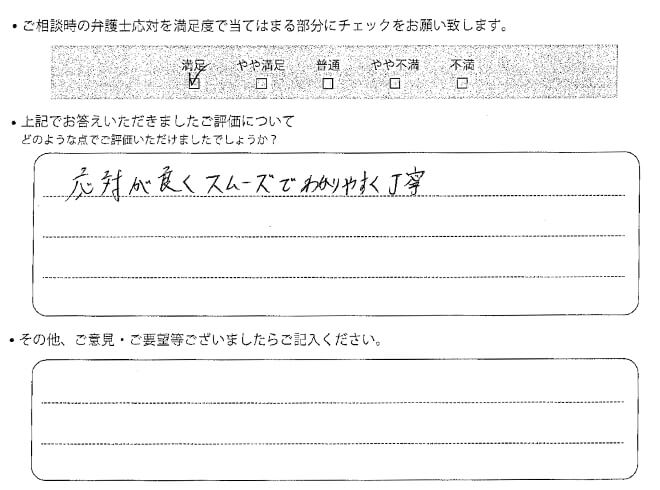 ・ご相談時の弁護士応対を満足度で当てはまる部分にチェックをお願い致します。
満足 やや満足 普通 やや不満 不満
・上記でお答えいただきましたご評価について
どのような点でご評価いただけましたでしょうか？
応対が良くスムーズでわかりやすく丁寧
・その他、ご意見・ご要望等ございましたらご記入ください。